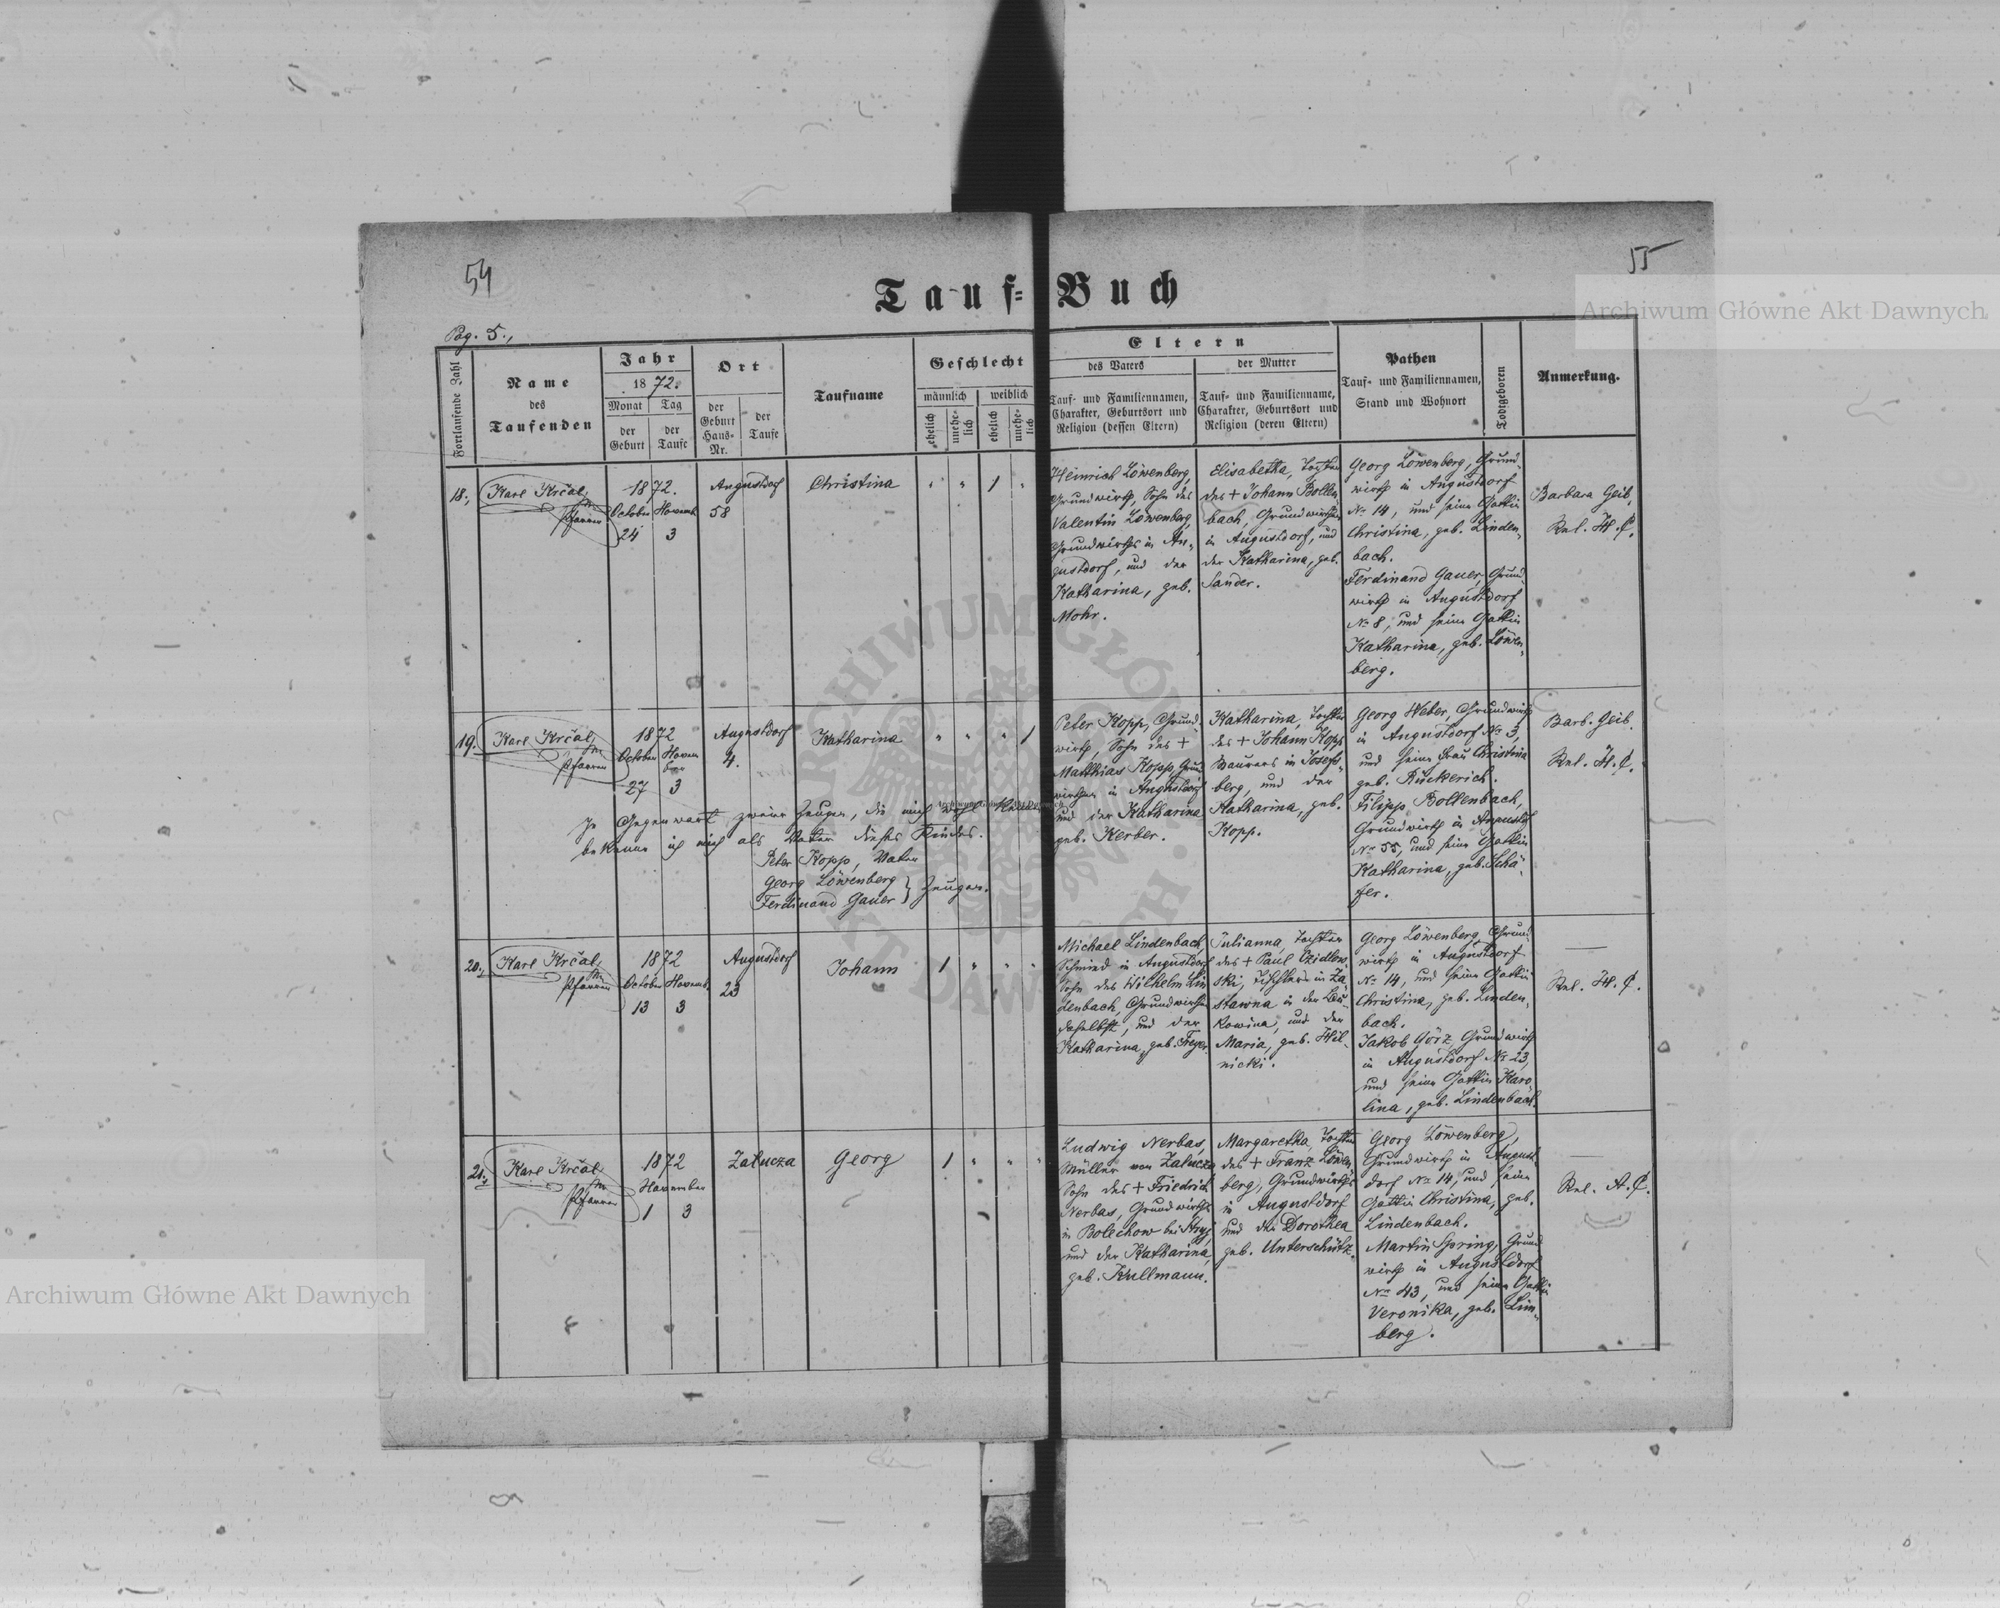 54
55
Archiwum Główne Akt Dawnych
Tauf= Buch
Pag. 5.,
Fortlaufende Zahl
Name
des
Taufenden
Jahr
1872.
Monat
der
Geburt
Tag
der
Taufe
Ort
der
Geburt
Haus=
Nr.
der
Taufe
Taufname
Geschlecht
männlich
weiblich
ehelich
unehe=
lich
ehelich
unehe=
lich
Eltern
des Vaters
Tauf= und Familiennamen,
Charakter, Geburtsort und
Religion (dessen Eltern)
der Mutter
Tauf= und Familienname,
Charakter, Geburtsort und
Religion (deren Eltern)
Pathen
Tauf= und Familiennamen,
Stand und Wohnort
Todtgeboren
Anmerkung.
18.,
Karl Krčal,
Pfarrer
1872.
October Novemb.
24 3
Augustdorf
58
Christina
" " 1 "
Heinrich Löwenberg,
Grundwirth, Sohn des
Valentin Löwenberg,
Grundwirthes in Au-
gustdorf, und der
Katharina, geb.
Mohr.
Elisabetha, Tochter
des + Johann Bollen-
bach, Grundwirthes
in Augustdorf, und
der Katharina, geb.
Sander.
Georg Löwenberg, Grund-
wirth in Augustdorf
No 14, und seine Gattin
Christina, geb. Linden-
bach.
Ferdinand Gauer, Grund-
wirth in Augustdorf
No 8, und seine Gattin
Katharina, geb. Löwen-
berg.
Barbara Geib,
Rel. H. C.
19.
Karl Krčal,
Pfarrer
1872
October Novem
ber
27 3
Augustdorf
4.
Katharina
" " " 1
In Gegenwart zweier Zeugen, die mich wohl kennen,
bekenne ich mich als Vater dieses Kindes.
Peter Kopp, Vater
Georg Löwenberg
Ferdinand Gauer } Zeugen.
Peter Kopp, Grund-
wirth, Sohn des +
Matthias Kopp, Grund
wirthes in Augustdorf
und der Katharina
geb. Kerber.
Katharina, Tochter
des + Johann Kopp
Maurers in Josefs-
berg, und der
Katharina, geb.
Kopp.
Georg Weber, Grundwirth
in Augustdorf No 3,
und seine Frau Christina
geb. Rückerich.
Filipp Bollenbach,
Grundwirth in Augustdorf
No 55, und seine Gattin
Katharina, geb. Schä-
fer.
Barb. Geib.
Rel. H. C.
20.,
Karl Krčal,
Pfarrer
1872
October Novemb.
13 3
Augustdorf
23
Johann
1 " " "
Michael Lindenbach
Schmied in Augustdorf
Sohn des Wilhelm Lin
denbach, Grundwirthes
daselbst, und der
Katharina, geb. Freyer.
Julianna, Tochter
des + Paul Czidlow-
ski, Tischlers in Za-
stawna in der Bu-
kowina, und der
Maria, geb. Wil-
nicki.
Georg Löwenberg, Grund-
wirth in Augustdorf
No 14, und seine Gattin
Christina, geb. Linden-
bach.
Jakob Görz, Grundwirth
in Augustdorf No 23,
und seine Gattin Karo-
lina, geb. Lindenbach.
Rel. H. C.
21.,
Karl Krčal,
Pfarrer
1872
November
1 3
Załucza
Georg
1 " " "
Ludwig Nerbas,
Müller von Załucza
Sohn des + Friedrich
Nerbas, Grundwirths
in Bolechow bei Stryj,
und der Katharina,
geb. Kullmann.
Margaretha, Tochter
des + Franz Löwen-
berg, Grundwirths
in Augustdorf
und der Dorothea
geb. Unterschütz.
Georg Löwenberg,
Grundwirth in August
dorf No 14, und seine
Gattin Christina, geb.
Lindenbach.
Martin Spring, Grund
wirth in Augustdorf
No 43, und seine Gattin
Veronika, geb. Lim-
berg.
Rel. A. C.
Archiwum Główne Akt Dawnych